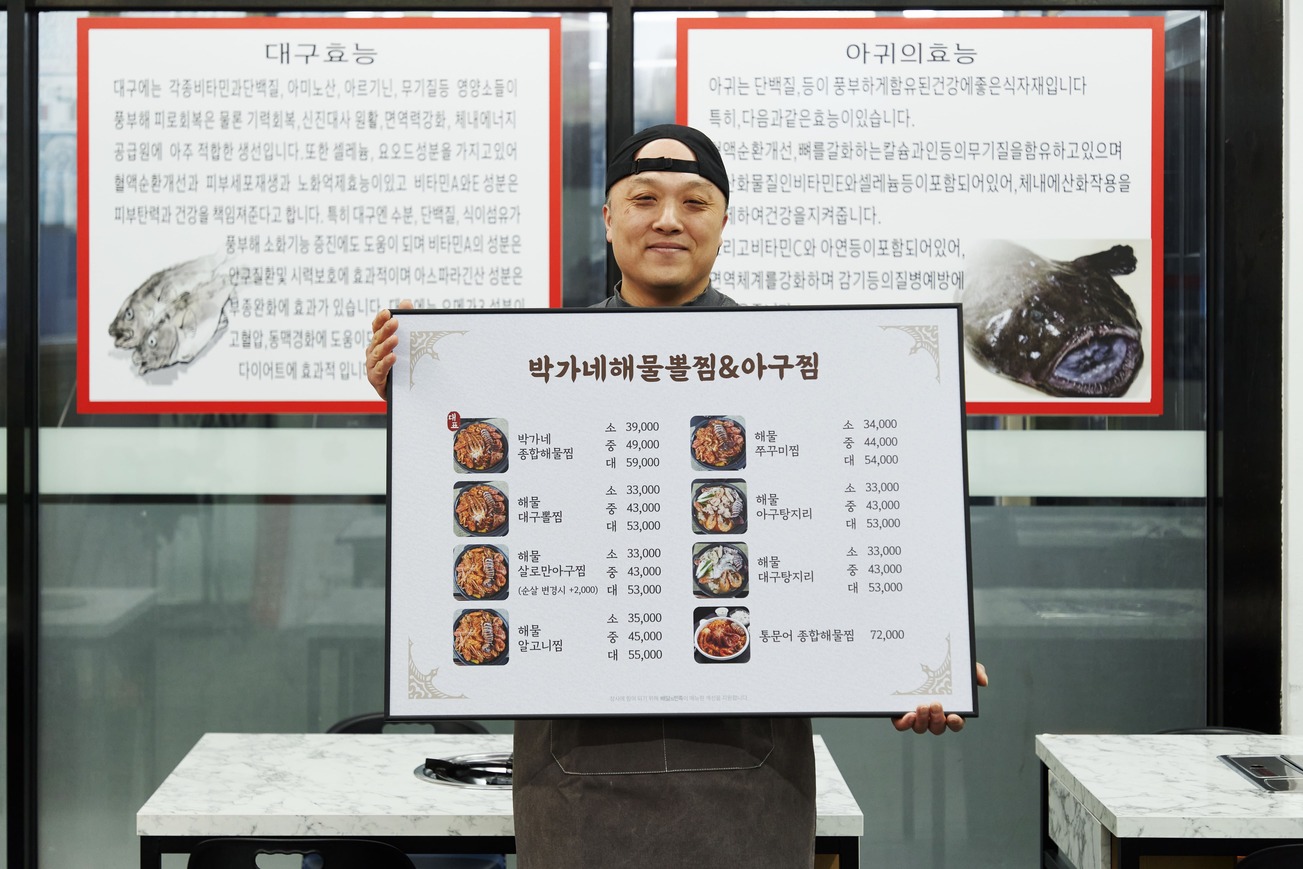 대구효능
대구에는 각종비타민과단백질, 아미노산, 아르기닌, 무기질등 영양소들이
풍부해 피로회복은 물론 기력회복, 신진대사 원활, 면역력강화, 체내에너지
공급원에 아주 적합한 생선입니다. 또한 셀레늄, 요오드성분을 가지고있어
혈액순환개선과 피부세포재생과 노화억제효능이있고 비타민A와E 성분은
피부탄력과 건강을 책임져준다고 합니다. 특히 대구엔 수분, 단백질, 식이섬유가
풍부해 소화기능 증진에도 도움이 되며 비타민A의 성분은
안구질환및 시력보호에 효과적이며 아스파라긴산 성분은
부종완화에 효과가 있습니다.
고혈압,동맥경화에 도움이
다이어트에 효과적 입니
아귀의효능
아귀는 단백질,등이 풍부하게함유된건강에좋은식자재입니다
특히,다음과같은효능이있습니다.
혈액순환개선,뼈를갈화하는칼슘과인등의무기질을함유하고있으며
산화물질인비타민E와셀레늄등이포함되어있어,체내에산화작용을
하여건강을지켜줍니다.
리고비타민C와 아연등이포함되어있어,
면역체계를강화하며 감기등의질병예방에
박가네해물뽈찜&아구찜
대표
박가네
종합해물찜
소 39,000
중 49,000
대 59,000
해물
대구뽈찜
소 33,000
중 43,000
대 53,000
해물
살로만아구찜
(순살 변경시 +2,000)
소 33,000
중 43,000
대 53,000
해물
알고니찜
소 35,000
중 45,000
대 55,000
해물
쭈꾸미찜
소 34,000
중 44,000
대 54,000
해물
아구탕지리
소 33,000
중 43,000
대 53,000
해물
대구탕지리
소 33,000
중 43,000
대 53,000
통문어 종합해물찜 72,000